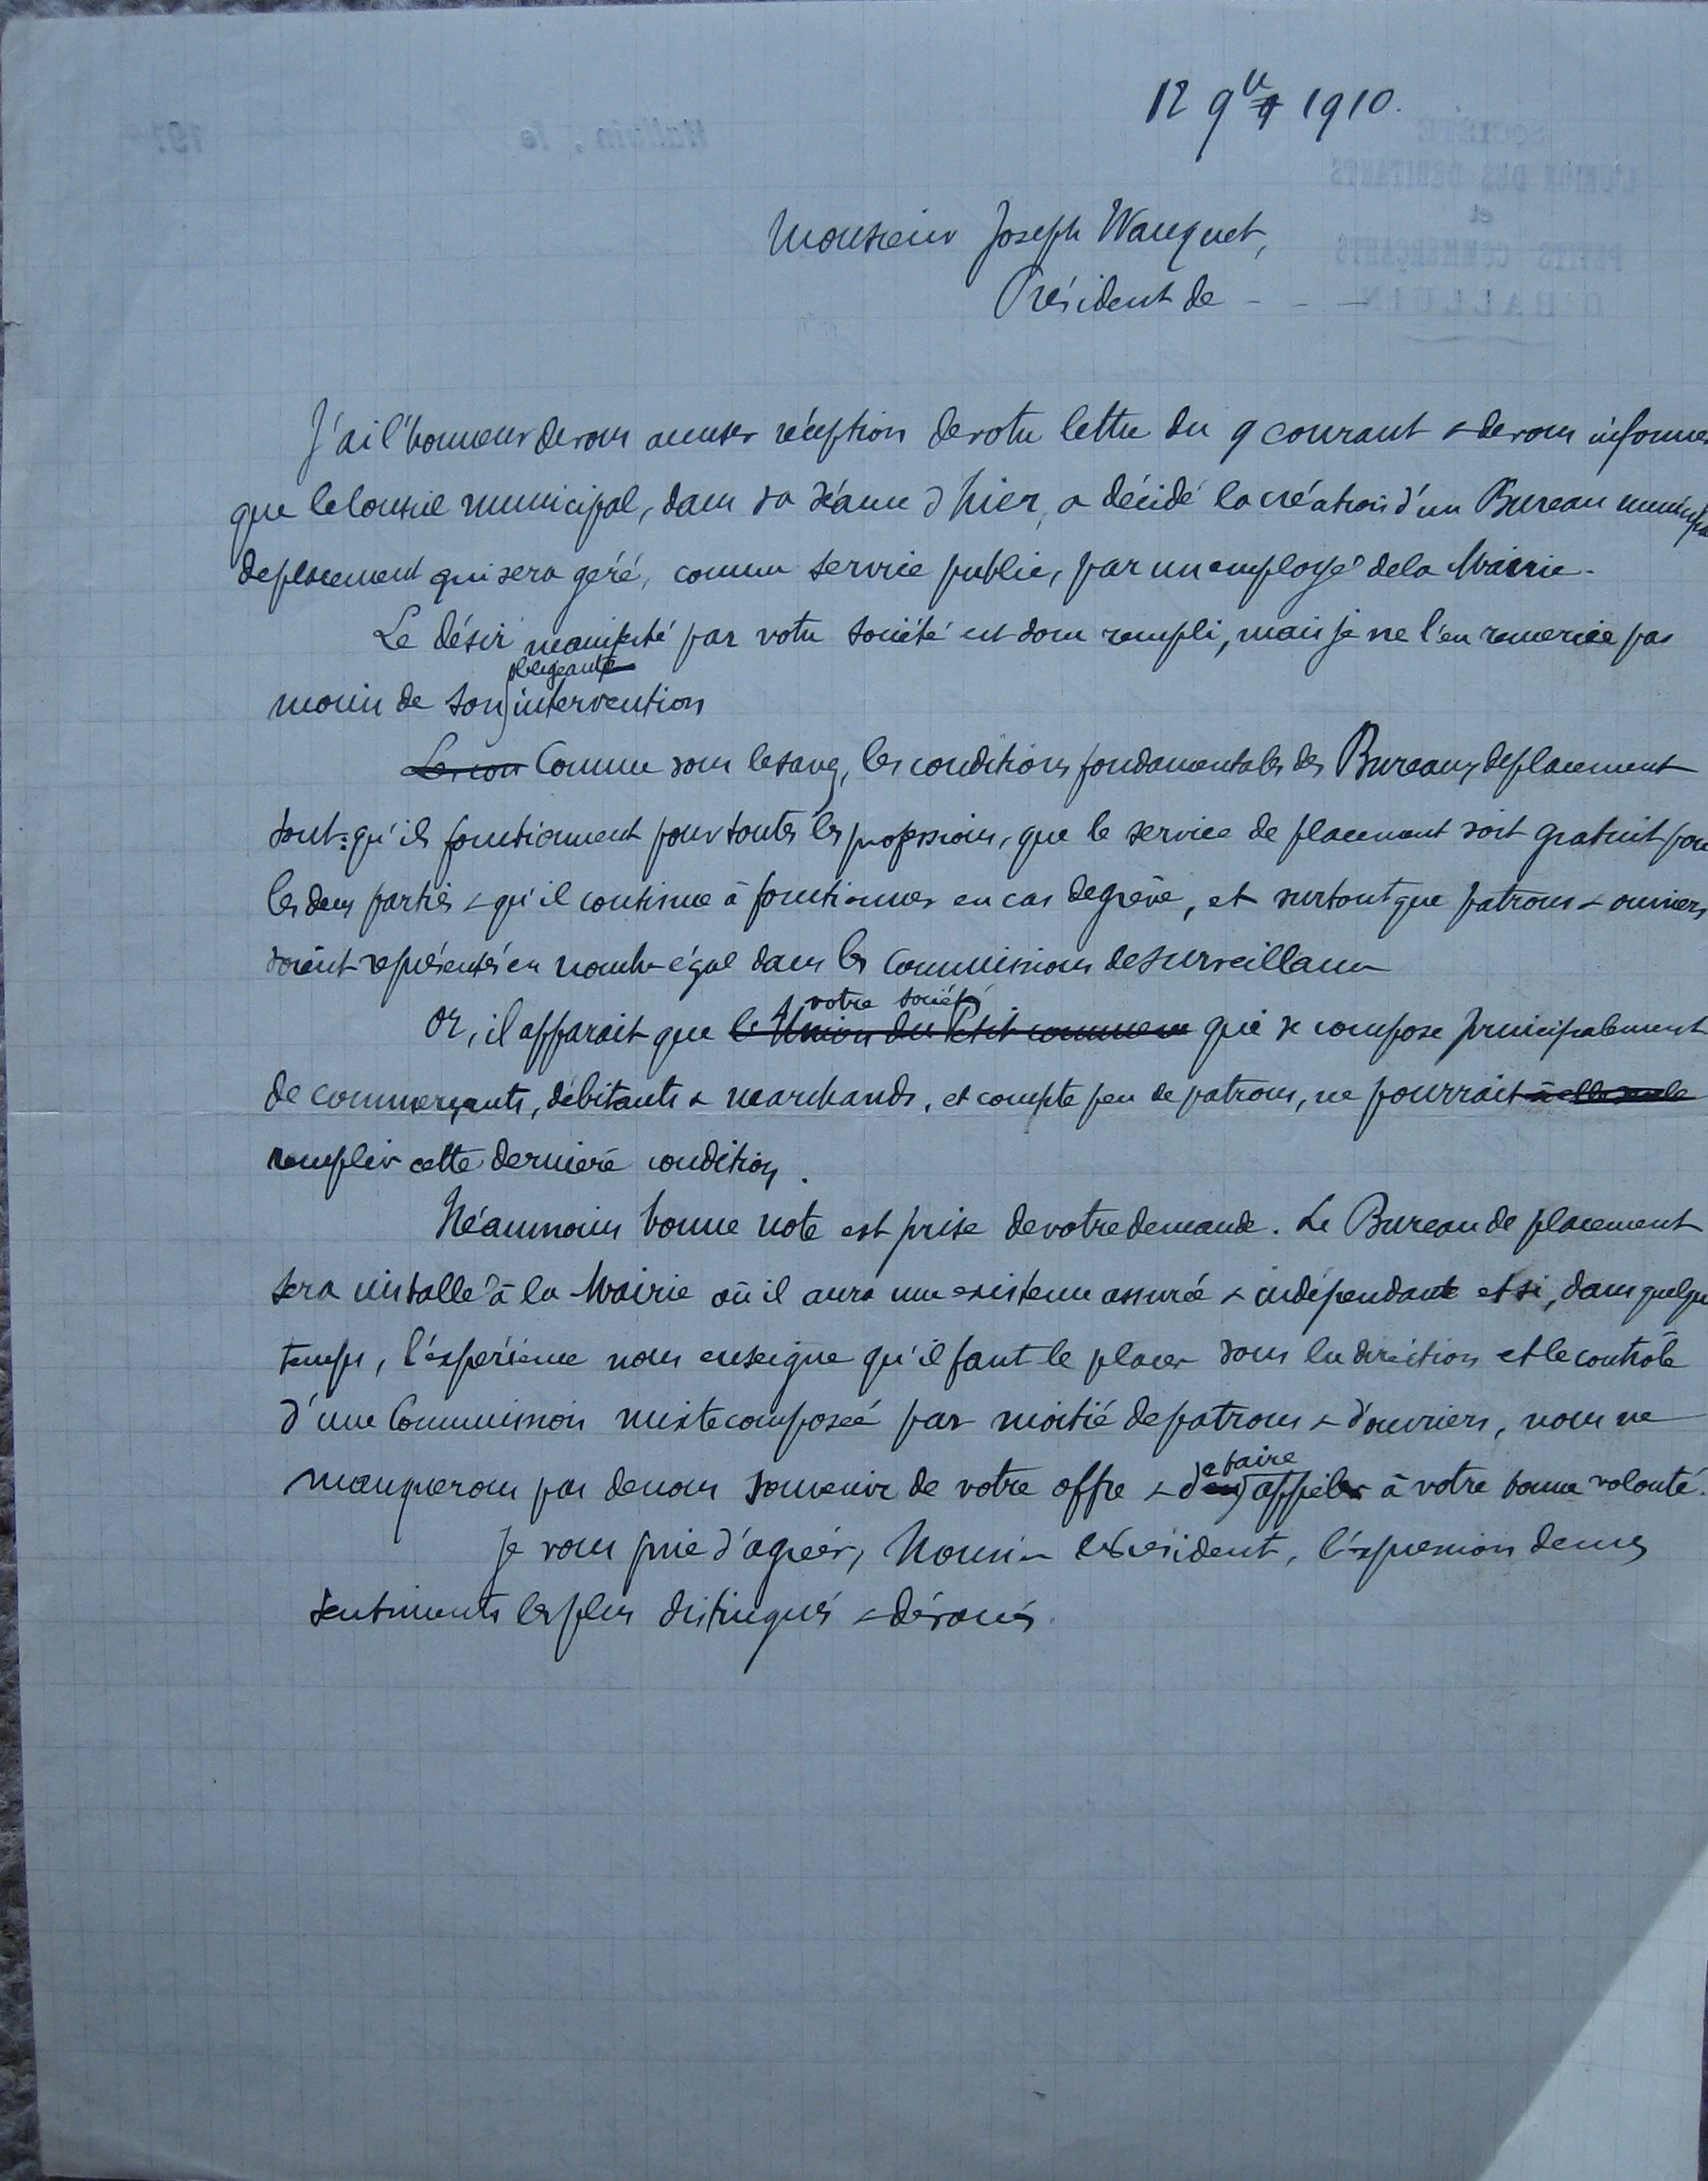 12 9bre 1910.
Monsieur Joseph Wauquet,
Président de - - -
J'ai l'honneur de vous accuser réception de votre lettre du 9 courant & de vous informer
que le Conseil municipal, dans sa séance d'hier, a décidé la création d'un Bureau municipal
de placement qui sera géré, comme service public, par un employé de la Mairie.
Le désir manifesté par votre Société est donc rempli, mais je ne l'en remercie pas
obligeante
moins de son intervention
Les con Comme vous le savez, les conditions fondamentales des Bureaux de placement
sont: qu'ils fonctionnent pour toutes les professions, que le service de placement soit gratuit pour
les deux parties & qu'il continue à fonctionner en cas de grève, et surtout que patrons & ouvriers
soient représentés en nombre égal dans les Commissions de surveillance
votre société
Or, il apparait que l'Union du Petit commerce qui se compose principalement
de commerçants, débitants & marchands, et compte peu de patrons, ne pourrait à elle seule
remplir cette dernière condition.
Néanmoins bonne note est prise de votre demande. Le Bureau de placement
sera installé à la Mairie où il aura une existence assurée & indépendante et si, dans quelque
temps, l'expérience nous enseigne qu'il faut le placer sous la direction et le contrôle
d'une Commission mixte composée par moitié de patrons & d'ouvriers, nous ne
e faire
manquerons pas de nous souvenir de votre offre & d'en appel à votre bonne volonté.
Je vous prie d'agréer, Monsieur le Président, l'expression de mes
sentiments les plus distingués & dévoués.
SOCIÉTÉ
L'UNION DES DÉBITANTS
et
PETITS COMMERÇANTS
D'HALLUIN
Halluin, le 191